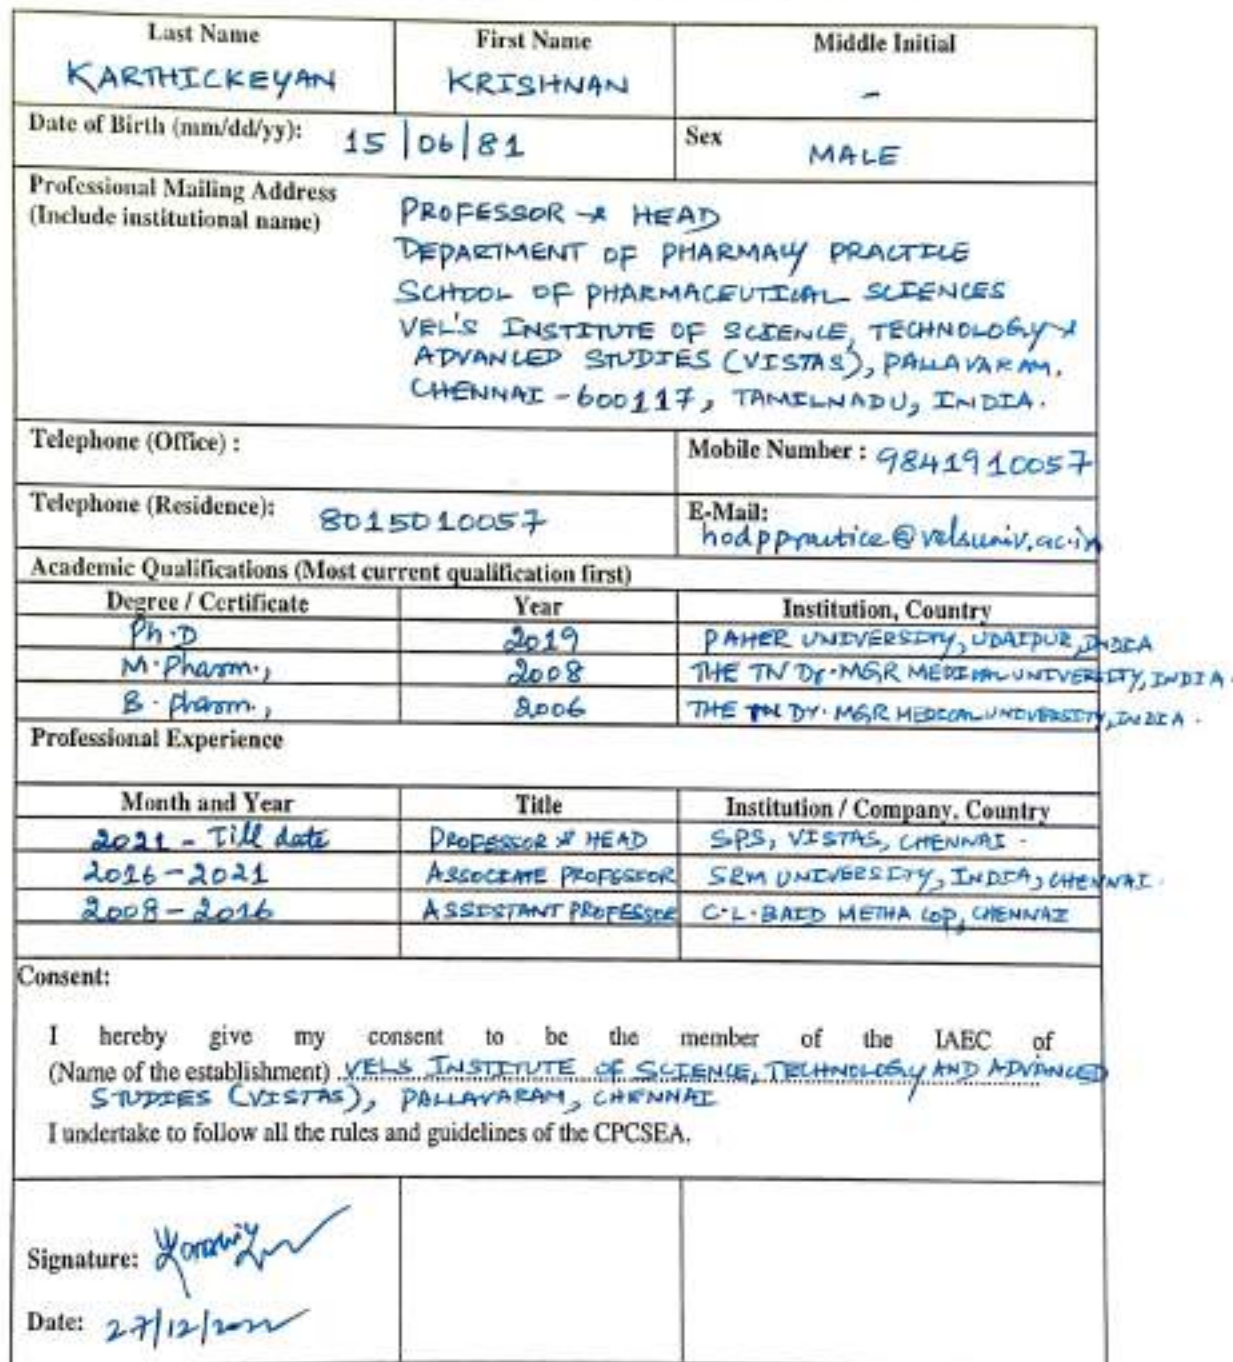 Last Name First Name Middle Initial
KARTHICKEYAN KRISHNAN -
Date of Birth (mm/dd/yy): 15/06/81 Sex MALE
Professional Mailing Address
(Include institutional name)
PROFESSOR & HEAD
DEPARTMENT OF PHARMACY PRACTICE
SCHOOL OF PHARMACEUTICAL SCIENCES
VEL'S INSTITUTE OF SCIENCE, TECHNOLOGY &
ADVANCED STUDIES (VISTAS), PALLAVARAM,
CHENNAI - 600117, TAMILNADU, INDIA.
Telephone (Office) : Mobile Number : 9841910057
Telephone (Residence): 8015010057 E-Mail:
hodppractice@velsuniv.ac.in
Academic Qualifications (Most current qualification first)
Degree / Certificate Year Institution, Country
Ph.D 2019 PAHER UNIVERSITY, UDAIPUR, INDIA
M.Pharm., 2008 THE TN Dr. MGR MEDICAL UNIVERSITY, INDIA.
B.Pharm., 2006 THE TN Dr. MGR MEDICAL UNIVERSITY, INDIA.
Professional Experience
Month and Year Title Institution / Company, Country
2021 - Till date PROFESSOR & HEAD SPS, VISTAS, CHENNAI.
2016 - 2021 ASSOCIATE PROFESSOR SRM UNIVERSITY, INDIA, CHENNAI.
2008 - 2016 ASSISTANT PROFESSOR C.L. BAID METHA COP, CHENNAI
Consent:
I hereby give my consent to be the member of the IAEC of
(Name of the establishment) VELS INSTITUTE OF SCIENCE, TECHNOLOGY AND ADVANCED
STUDIES (VISTAS), PALLAVARAM, CHENNAI
I undertake to follow all the rules and guidelines of the CPCSEA.
Signature:
Date: 27/12/2022